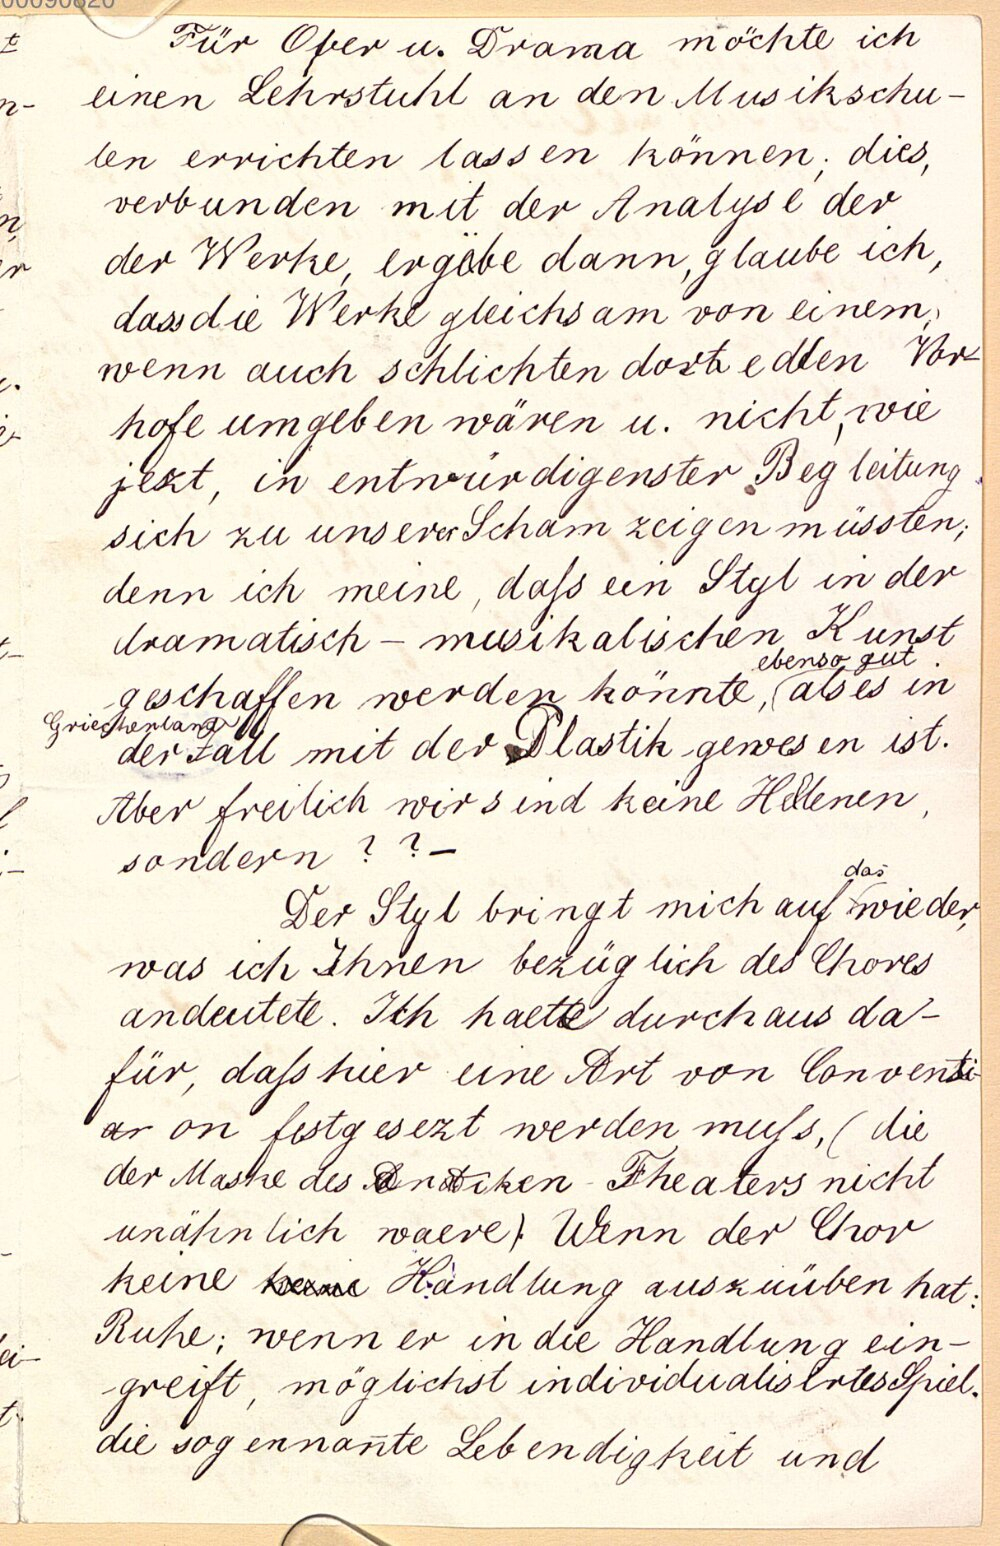 00090820
Für Oper u. Drama möchte ich
einen Lehrstuhl an den Musikschu-
len errichten lassen können; dies,
verbunden mit der Analyse der
der Werke, ergäbe dann, glaube ich,
dass die Werke gleichsam von einem,
wenn auch schlichten doch edlen Vor-
hofe umgeben wären u. nicht, wie
jezt, in entwürdigenster Begleitung
sich zu unserer Scham zeigen müssten;
denn ich meine, daſs ein Styl in der
dramatisch - musikalischen Kunst
ebenso gut
geschaffen werden könnte, als es in
Griechenland
der Fall mit der Plastik gewesen ist.
Aber freilich wir sind keine Hellenen,
sondern ? ? -
das
Der Styl bringt mich auf wieder,
was ich Ihnen bezüglich des Chores
andeutete. Ich haette durchaus da-
für, daſs hier eine Art von Conventi
on festgesezt werden muſs, (die
der Maske des Antiken Theaters nicht
unähnlich waere). Wenn der Chor
keine keine Handlung auszuüben hat:
Ruhe; wenn er in die Handlung ein-
greift, möglichst individualisirtes Spiel.
die sogennan̄te Lebendigkeit und